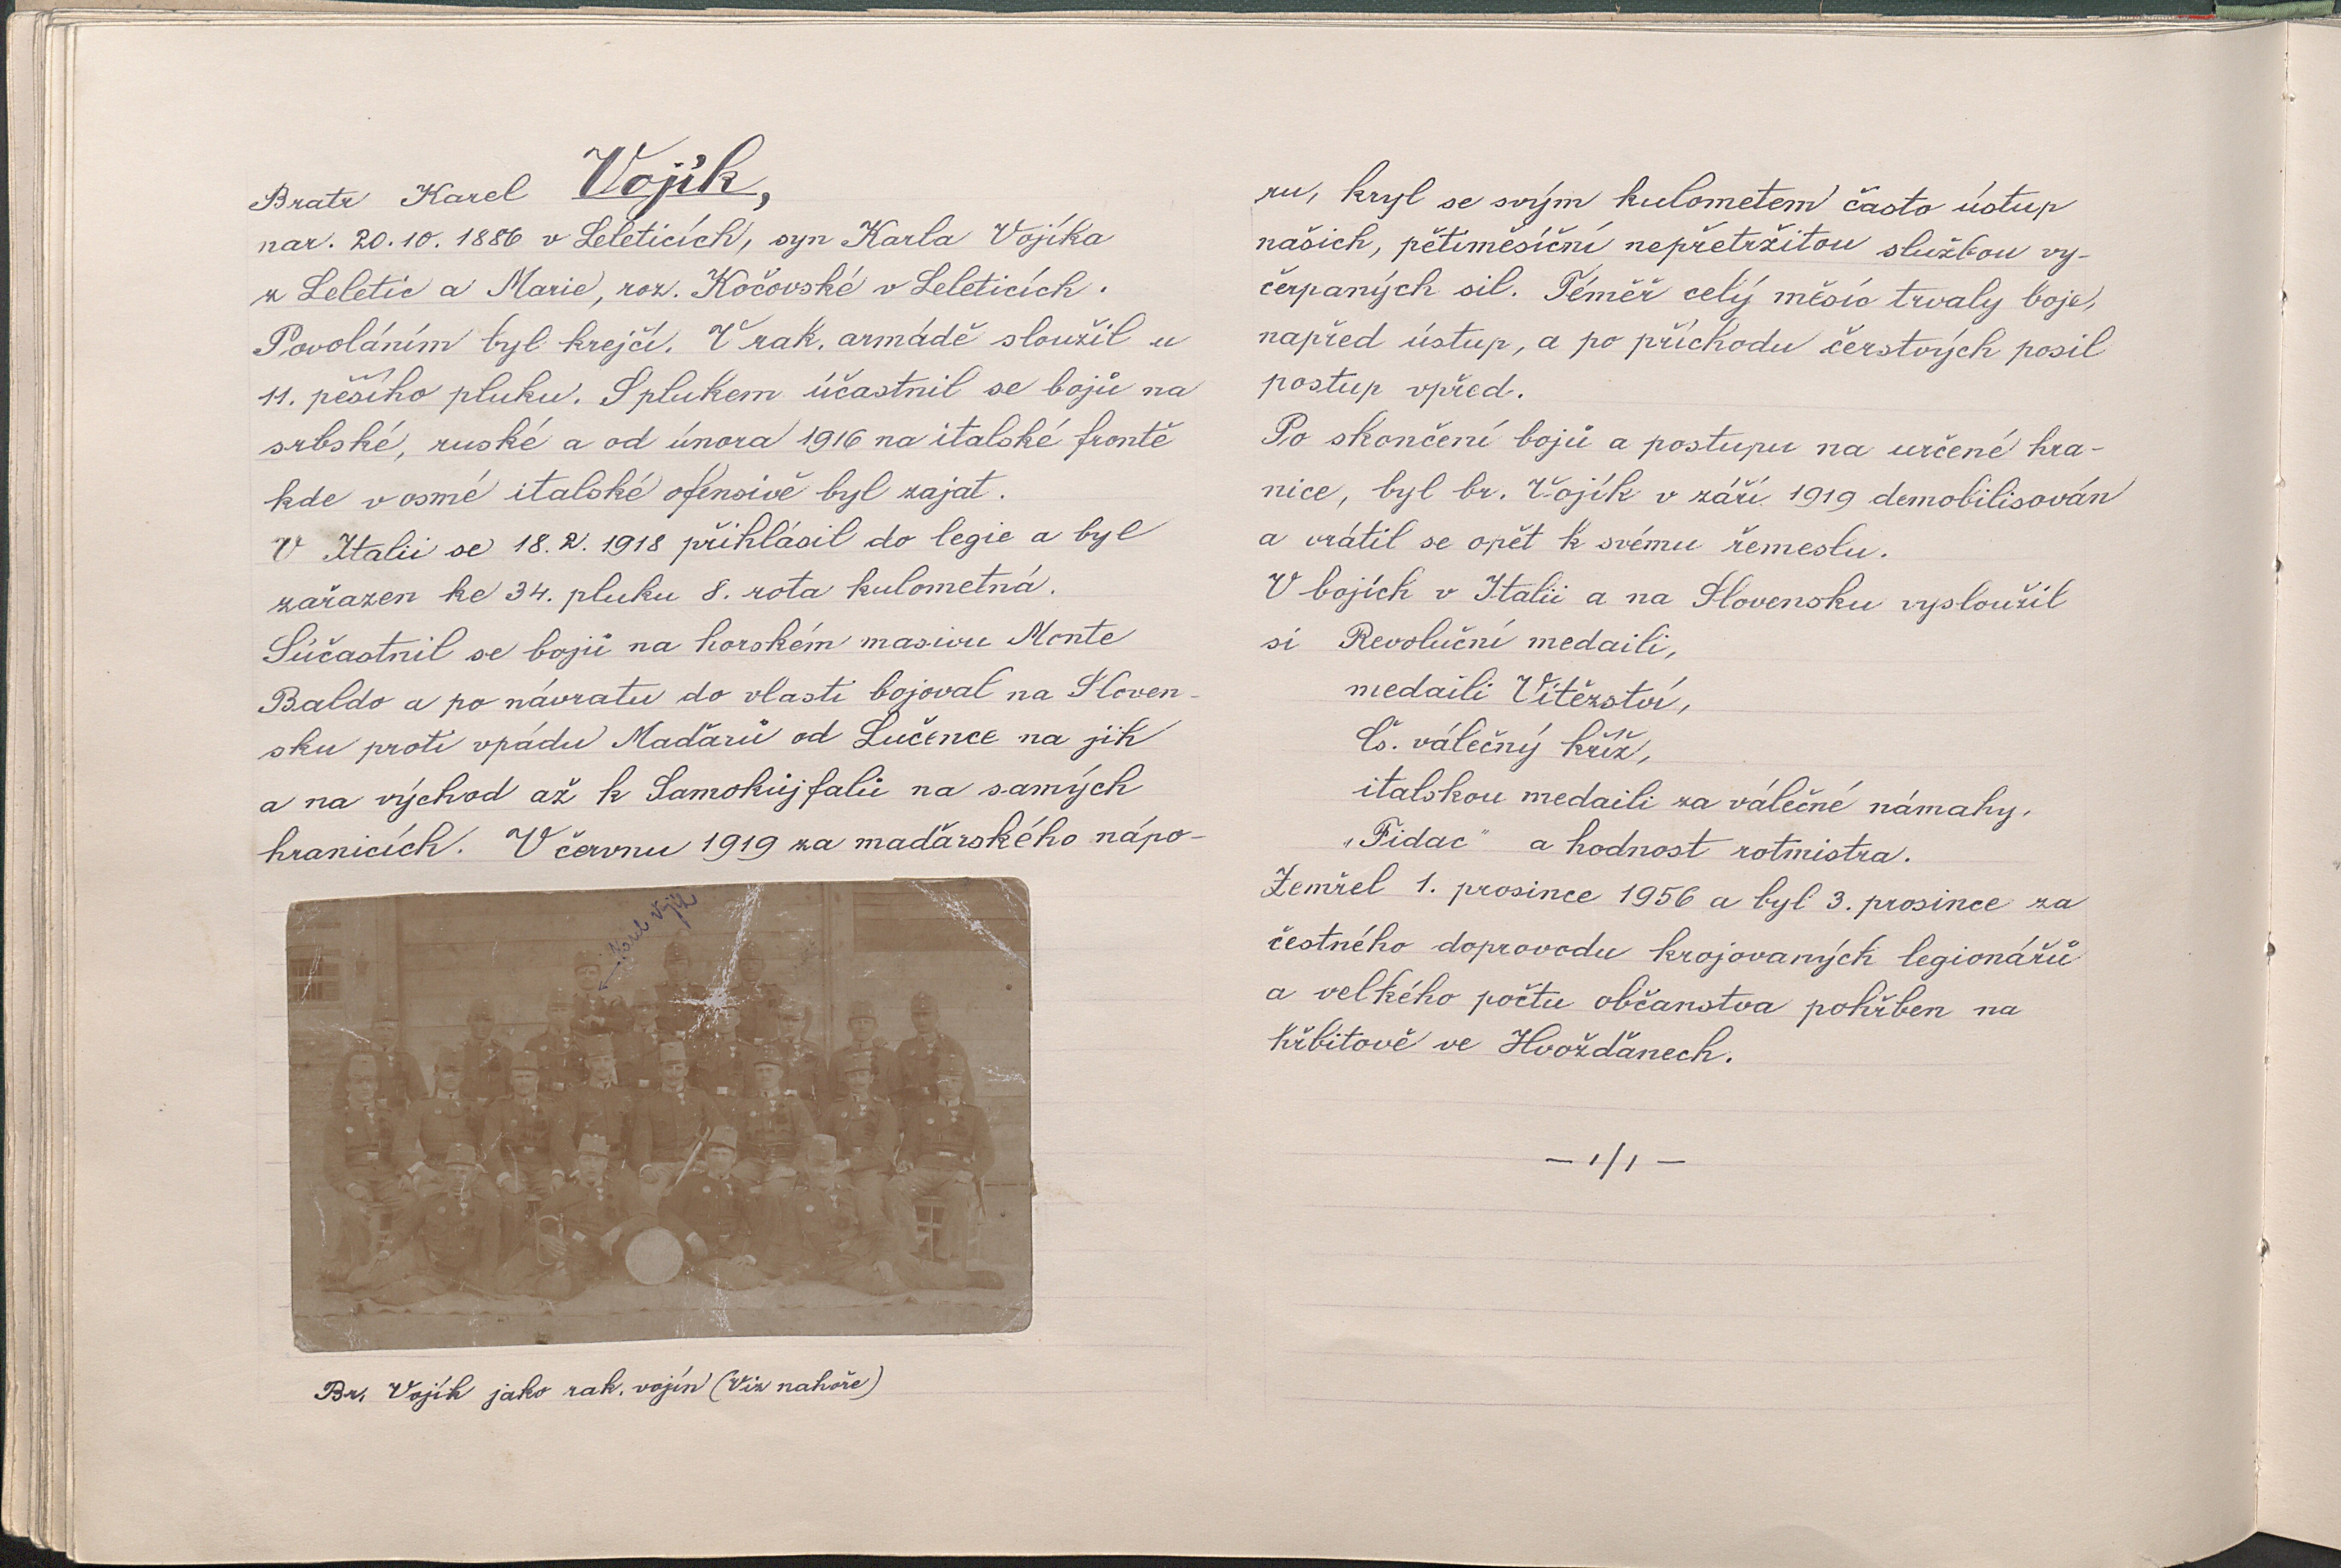 Bratr Karel Vojík,
nar. 20.10. 1886 v Leleticích, syn Karla Vojíka
z Leletic a Marie, roz. Kočovské v Leleticích.
Povoláním byl krejčí. V rak. armádě sloužil u
11. pěšího pluku. S plukem účastnil se bojů na
srbské, ruské a od února 1916 na italské frontě
kde v osmé italské ofensivě byl zajat.
V Italii se 18. 2. 1918 přihlásil do legie a byl
zařazen ke 34. pluku 8. rota kulometná.
Súčastnil se bojů na horském masivu Monte
Baldo a po návratu do vlasti bojoval na Sloven-
sku proti vpádu Maďarů od Lučence na jih
a na východ až k Šamokújfalů na samých
hranicích. V červnu 1919 za maďarského nápo-
Karel Vojík
Br. Vojík jako rak. vojín (Viz nahoře)
ru, kryl se svým kulometem často ústup
našich, pětiměsíční nepřetržitou službou vy-
čerpaných sil. Téměř celý měsíc trvaly boje,
napřed ústup, a po příchodu čerstvých posil
postup vpřed.
Po skončení bojů a postupu na určené hra-
nice, byl br. Vojík v září 1919 demobilisován
a vrátil se opět k svému řemeslu.
V bojích v Italii a na Slovensku vysloužil
si Revoluční medaili,
medaili Vítězství,
Čs. válečný kříž,
italskou medaili za válečné námahy,
„Fidac" a hodnost rotmistra.
Zemřel 1. prosince 1956 a byl 3. prosince za
čestného doprovodu krojovaných legionářů
a velkého počtu občanstva pohřben na
hřbitově ve Hvožďanech.
— 1/1 —